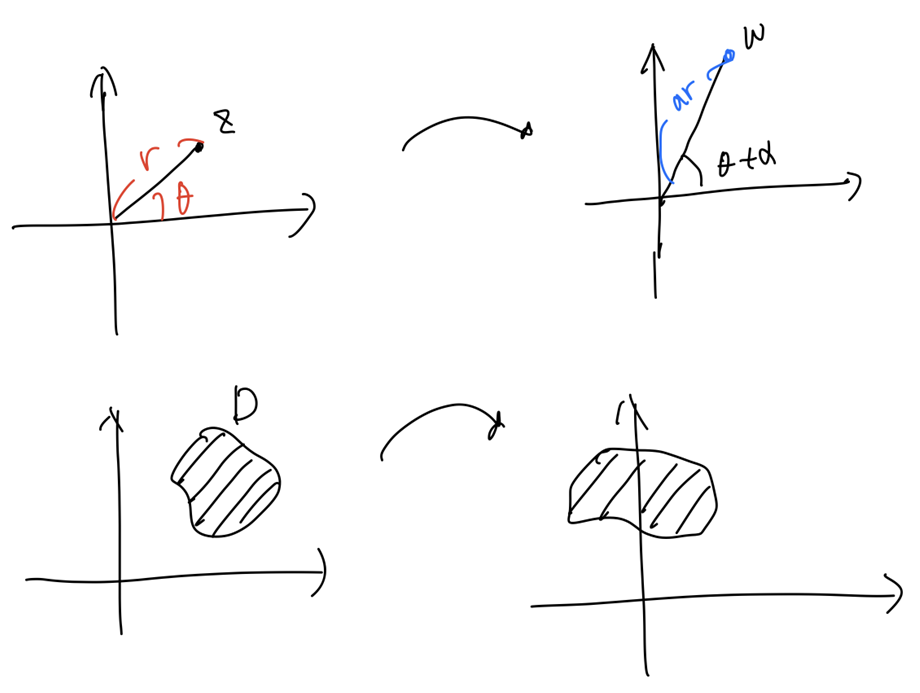 z
r
θ
w
ar
θ+α
D